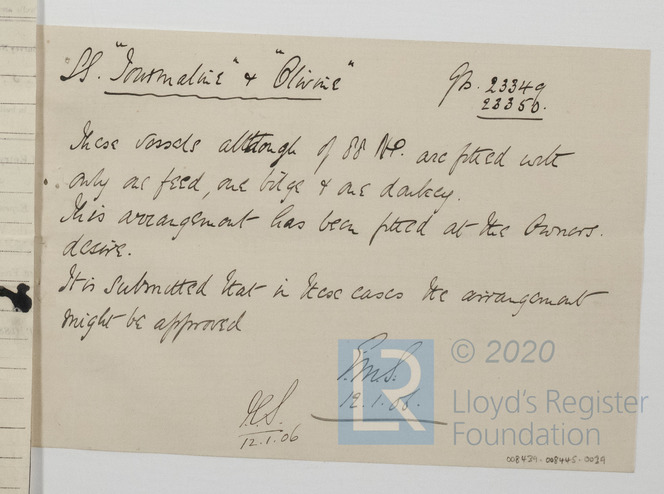 SS. "Tourmaline" & "Olivine"
Gls. 23349
23350.
These vessels although of 88 NHP. are fitted with
only one feed, one bilge & one donkey.
This arrangement has been fitted at the Owners.
desire.
It is submitted that in these cases the arrangement
might be approved
12.1.06.
12.1.06
LR
© 2020
Lloyd's Register
Foundation
008439-008445-0029